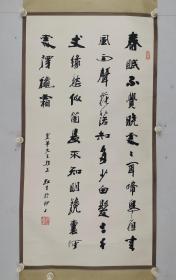 春眠不覺曉處處聞啼鳥夜來
風雨聲花落知多少白髮三千
丈緣愁似箇長不知明鏡裏何
處得穐霜